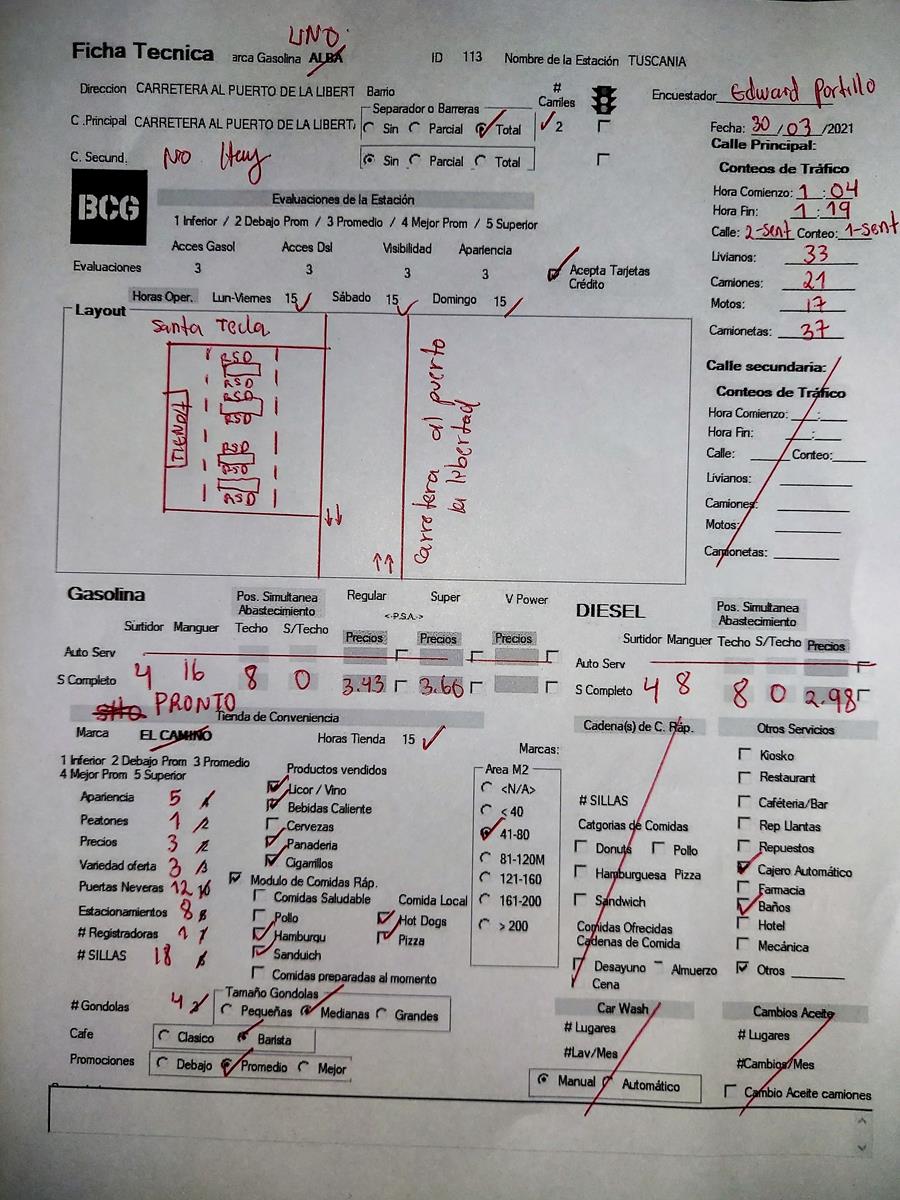 UNO
Ficha Tecnica arca Gasolina ALBA ID 113 Nombre de la Estación TUSCANIA
Direccion CARRETERA AL PUERTO DE LA LIBERT Barrio # Carriles Encuestador Edward Portillo
Separador o Barreras
C .Principal CARRETERA AL PUERTO DE LA LIBERTA Sin Parcial Total 2 Fecha: 30 / 03 /2021
Calle Principal:
C. Secund. No Hay Sin Parcial Total
Conteos de Tráfico
BCG
Evaluaciones de la Estación
Hora Comienzo: 1 : 04
1 Inferior / 2 Debajo Prom / 3 Promedio / 4 Mejor Prom / 5 Superior
Hora Fin: 1 : 19
Calle: 2-sent Conteo: 1-sent
Acces Gasol Acces Dsl Visibilidad Apariencia
Livianos: 33
Evaluaciones 3 3 3 3 Acepta Tarjetas Crédito
Camiones: 21
Horas Oper. Lun-Viernes 15 Sábado 15 Domingo 15
Motos: 17
Layout
Camionetas: 37
Santa Tecla
TIENDA
RSD
RSD
RSD
RSD
RSD
RSD
RSD
Carretera al puerto
la libertad
Calle secundaria:
Conteos de Tráfico
Hora Comienzo: :
Hora Fin: :
Calle: Conteo:
Livianos:
Camiones:
Motos:
Camionetas:
Gasolina Pos. Simultanea Abastecimiento Regular Super V Power
<-P.S.A.->
Surtidor Manguer Techo S/Techo Precios Precios Precios
Auto Serv
S Completo 4 16 8 0 3.43 3.66
DIESEL Pos. Simultanea Abastecimiento
Surtidor Manguer Techo S/Techo Precios
Auto Serv
S Completo 4 8 8 0 2.98
PRONTO
Tienda de Conveniencia
Marca EL CAMINO Horas Tienda 15
1 Inferior 2 Debajo Prom 3 Promedio
4 Mejor Prom 5 Superior
Apariencia 5
Peatones 1
Precios 3
Variedad oferta 3
Puertas Neveras 12
Estacionamientos 8
# Registradoras 1
# SILLAS 18
# Gondolas 4
Productos vendidos
Licor / Vino
Bebidas Caliente
Cervezas
Panaderia
Cigarrillos
Modulo de Comidas Ráp.
Comidas Saludable Comida Local
Pollo Hot Dogs
Hamburgu Pizza
Sanduich
Comidas preparadas al momento
Tamaño Gondolas
Pequeñas Medianas Grandes
Cafe Clasico Barista
Promociones Debajo Promedio Mejor
Marcas:
Area M2
<N/A>
< 40
41-80
81-120M
121-160
161-200
> 200
Cadena(s) de C. Ráp.
# SILLAS
Catgorias de Comidas
Donuts Pollo
Hamburguesa Pizza
Sandwich
Comidas Ofrecidas
Cadenas de Comida
Desayuno Almuerzo
Cena
Car Wash
# Lugares
#Lav/Mes
Manual Automático
Otros Servicios
Kiosko
Restaurant
Caféteria/Bar
Rep Llantas
Repuestos
Cajero Automático
Farmacia
Baños
Hotel
Mecánica
Otros
Cambios Aceite
# Lugares
#Cambios/Mes
Cambio Aceite camiones